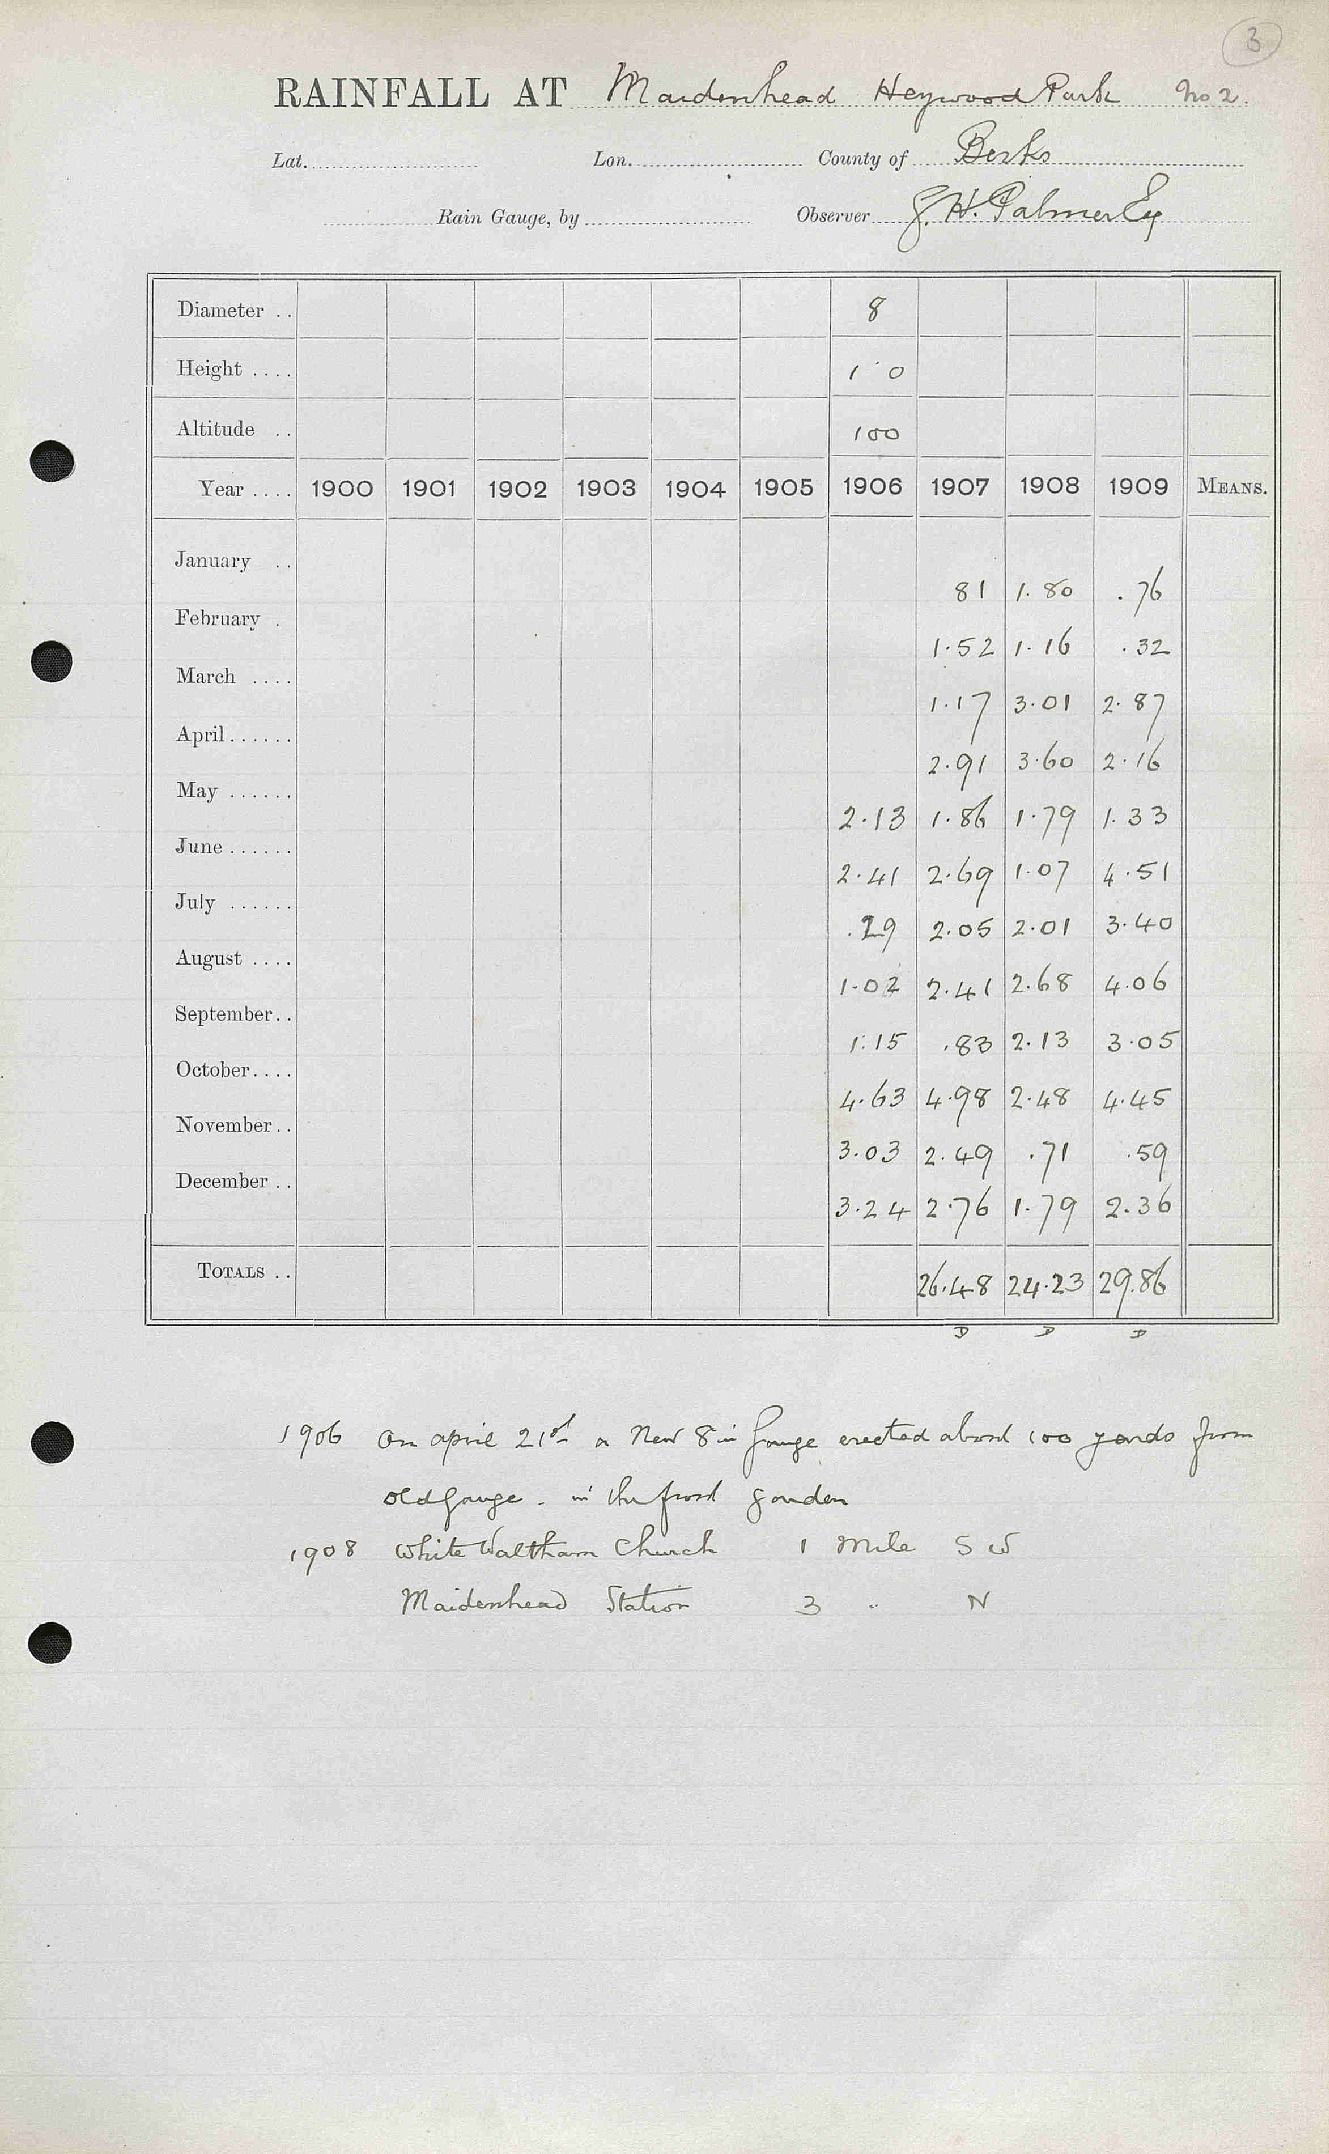 3
RAINFALL AT Maidenhead Heywood Park No 2.
Lat. Lon. County of Berks
Rain Gauge, by Observer J. H. Palmer Esq
Diameter .. 8
Height .... 1 0
Altitude .. 100
Year .... 1900 1901 1902 1903 1904 1905 1906 1907 1908 1909 MEANS.
January .. 81 1.80 .76
February . 1.52 1.16 .32
March .... 1.17 3.01 2.87
April...... 2.91 3.60 2.16
May ...... 2.13 1.86 1.79 1.33
June...... 2.41 2.69 1.07 4.51
July ...... .29 2.05 2.01 3.40
August .... 1.02 2.41 2.68 4.06
September.. 1.15 .83 2.13 3.05
October.... 4.63 4.98 2.48 4.45
November.. 3.03 2.49 .71 .59
December .. 3.24 2.76 1.79 2.36
TOTALS .. 26.48 24.23 29.86
D D D
1906 On april 21st a New 8 in gauge erected about 100 yards from
old gauge. in the front garden
1908 White Waltham Church 1 Mile S W
Maidenhead Station 3 " N